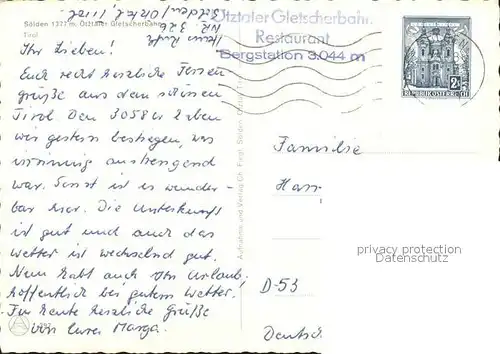 Sölden 1377 m, Ötztaler Gletscherbahn
Tirol
Ötztaler Gletscherbahn
Restaurant
Bergstation 3.044 m
2 S
REPUBLIK ÖSTERREICH
Ihr Lieben!
Euch recht herzliche Ferien-
grüße aus dem schönen
Tirol. Den 3058er haben
wir gestern bestiegen, was
anstrengend
war. Sonst ist es wunder-
bar hier. Die Unterkunft
ist gut und auch das
Wetter ist wechselnd gut.
Nun habt auch Ihr Urlaub,
hoffentlich bei gutem Wetter.
Für heute herzliche Grüße
von Eurer Marga.
Aufnahme und Verlag Ch. Fingl, Sölden
Familie
Han
privacy protection
Datenschutz
D-53
Deutsc